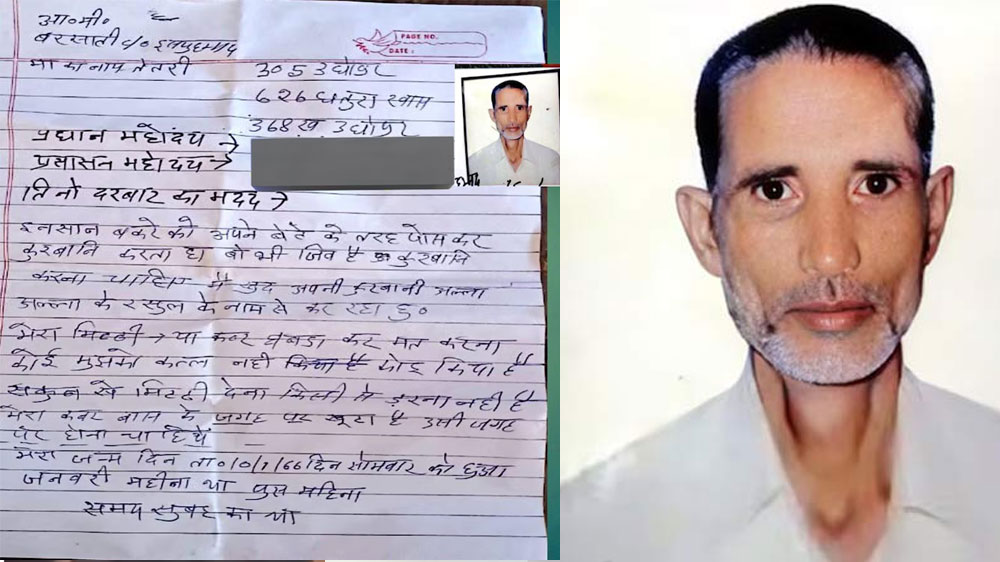 आ०मी०
PAGE NO.
DATE :
बरसाती c/o
मा का नाम तेतरी
305 उधोपुर
626
368ख उधोपुर
प्रधान महोदय →
प्रसासन महोदय →
तिनो दरबार का मदद →
इनसान बकरे को अपने बेटे के तरह पोस कर
कुरबानि करता है। वो भी जिव है कुरबानि
करना चाहिए मै खुद अपनी कुरबानी अल्ला
अल्ला के रसुल के नाम से कर रहा हु०
मेरा मिटटी → या कबर घबडा कर मत करना
कोई मुझको कत्ल नही किया है
सकुन से मिटटी देना किसी से डरना नही है
मेरा कबर बास के जगह पर खुटा है उसी जगह
पर होना चाहिये
मेरा जन्म दिन ता० दिन सोमवार को हुआ
जनवरी महीना था पुस महिना
समय सुबह का था